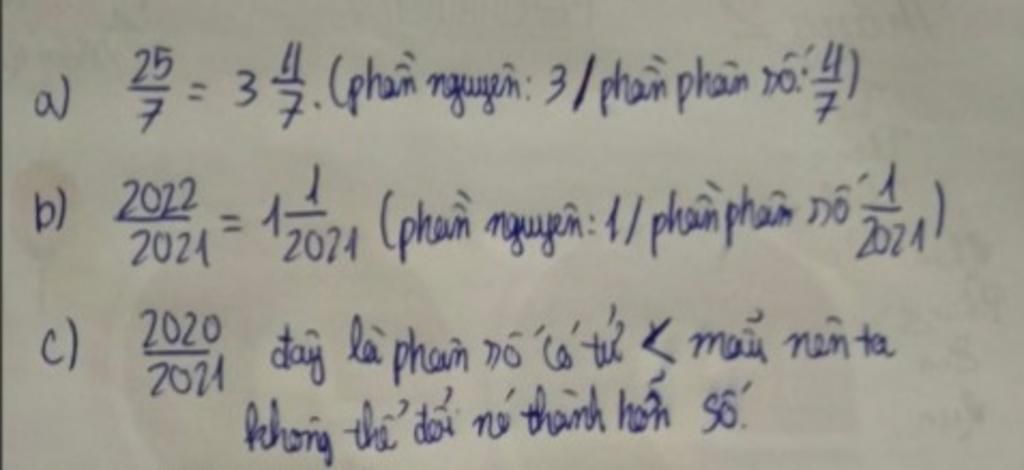 a) 25/7 = 3 4/7. (phần nguyên: 3 / phần phân số: 4/7)
b) 2022/2021 = 1 1/2021 (phần nguyên: 1 / phần phân số 1/2021)
c) 2020/2021 đây là phân số có tử < mẫu nên ta
không thể đổi nó thành hỗn số.